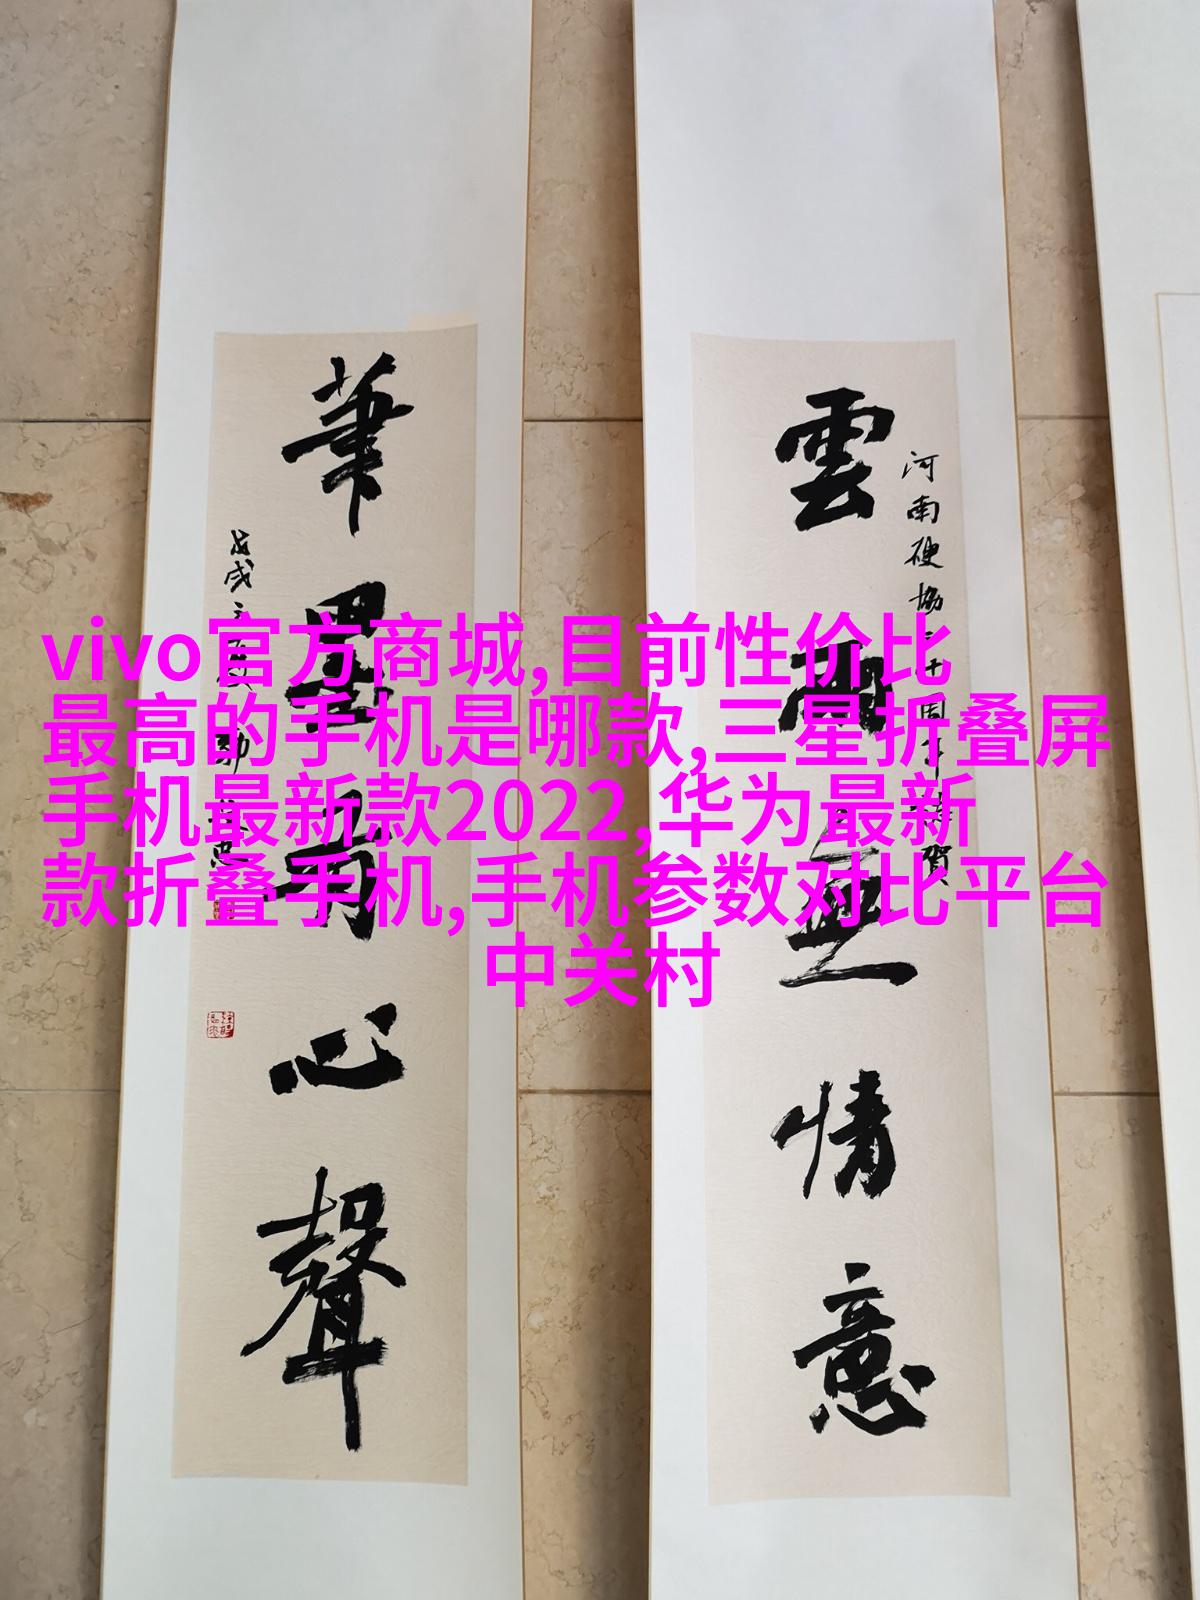 vivo官方商城,目前性价比
最高的手机是哪款,三星折叠屏
手机最新款2022,华为最新
款折叠手机,手机参数对比平台
中关村
雲雨無情意
筆墨有心聲
河南硬協二十周年誌賀
戊戌